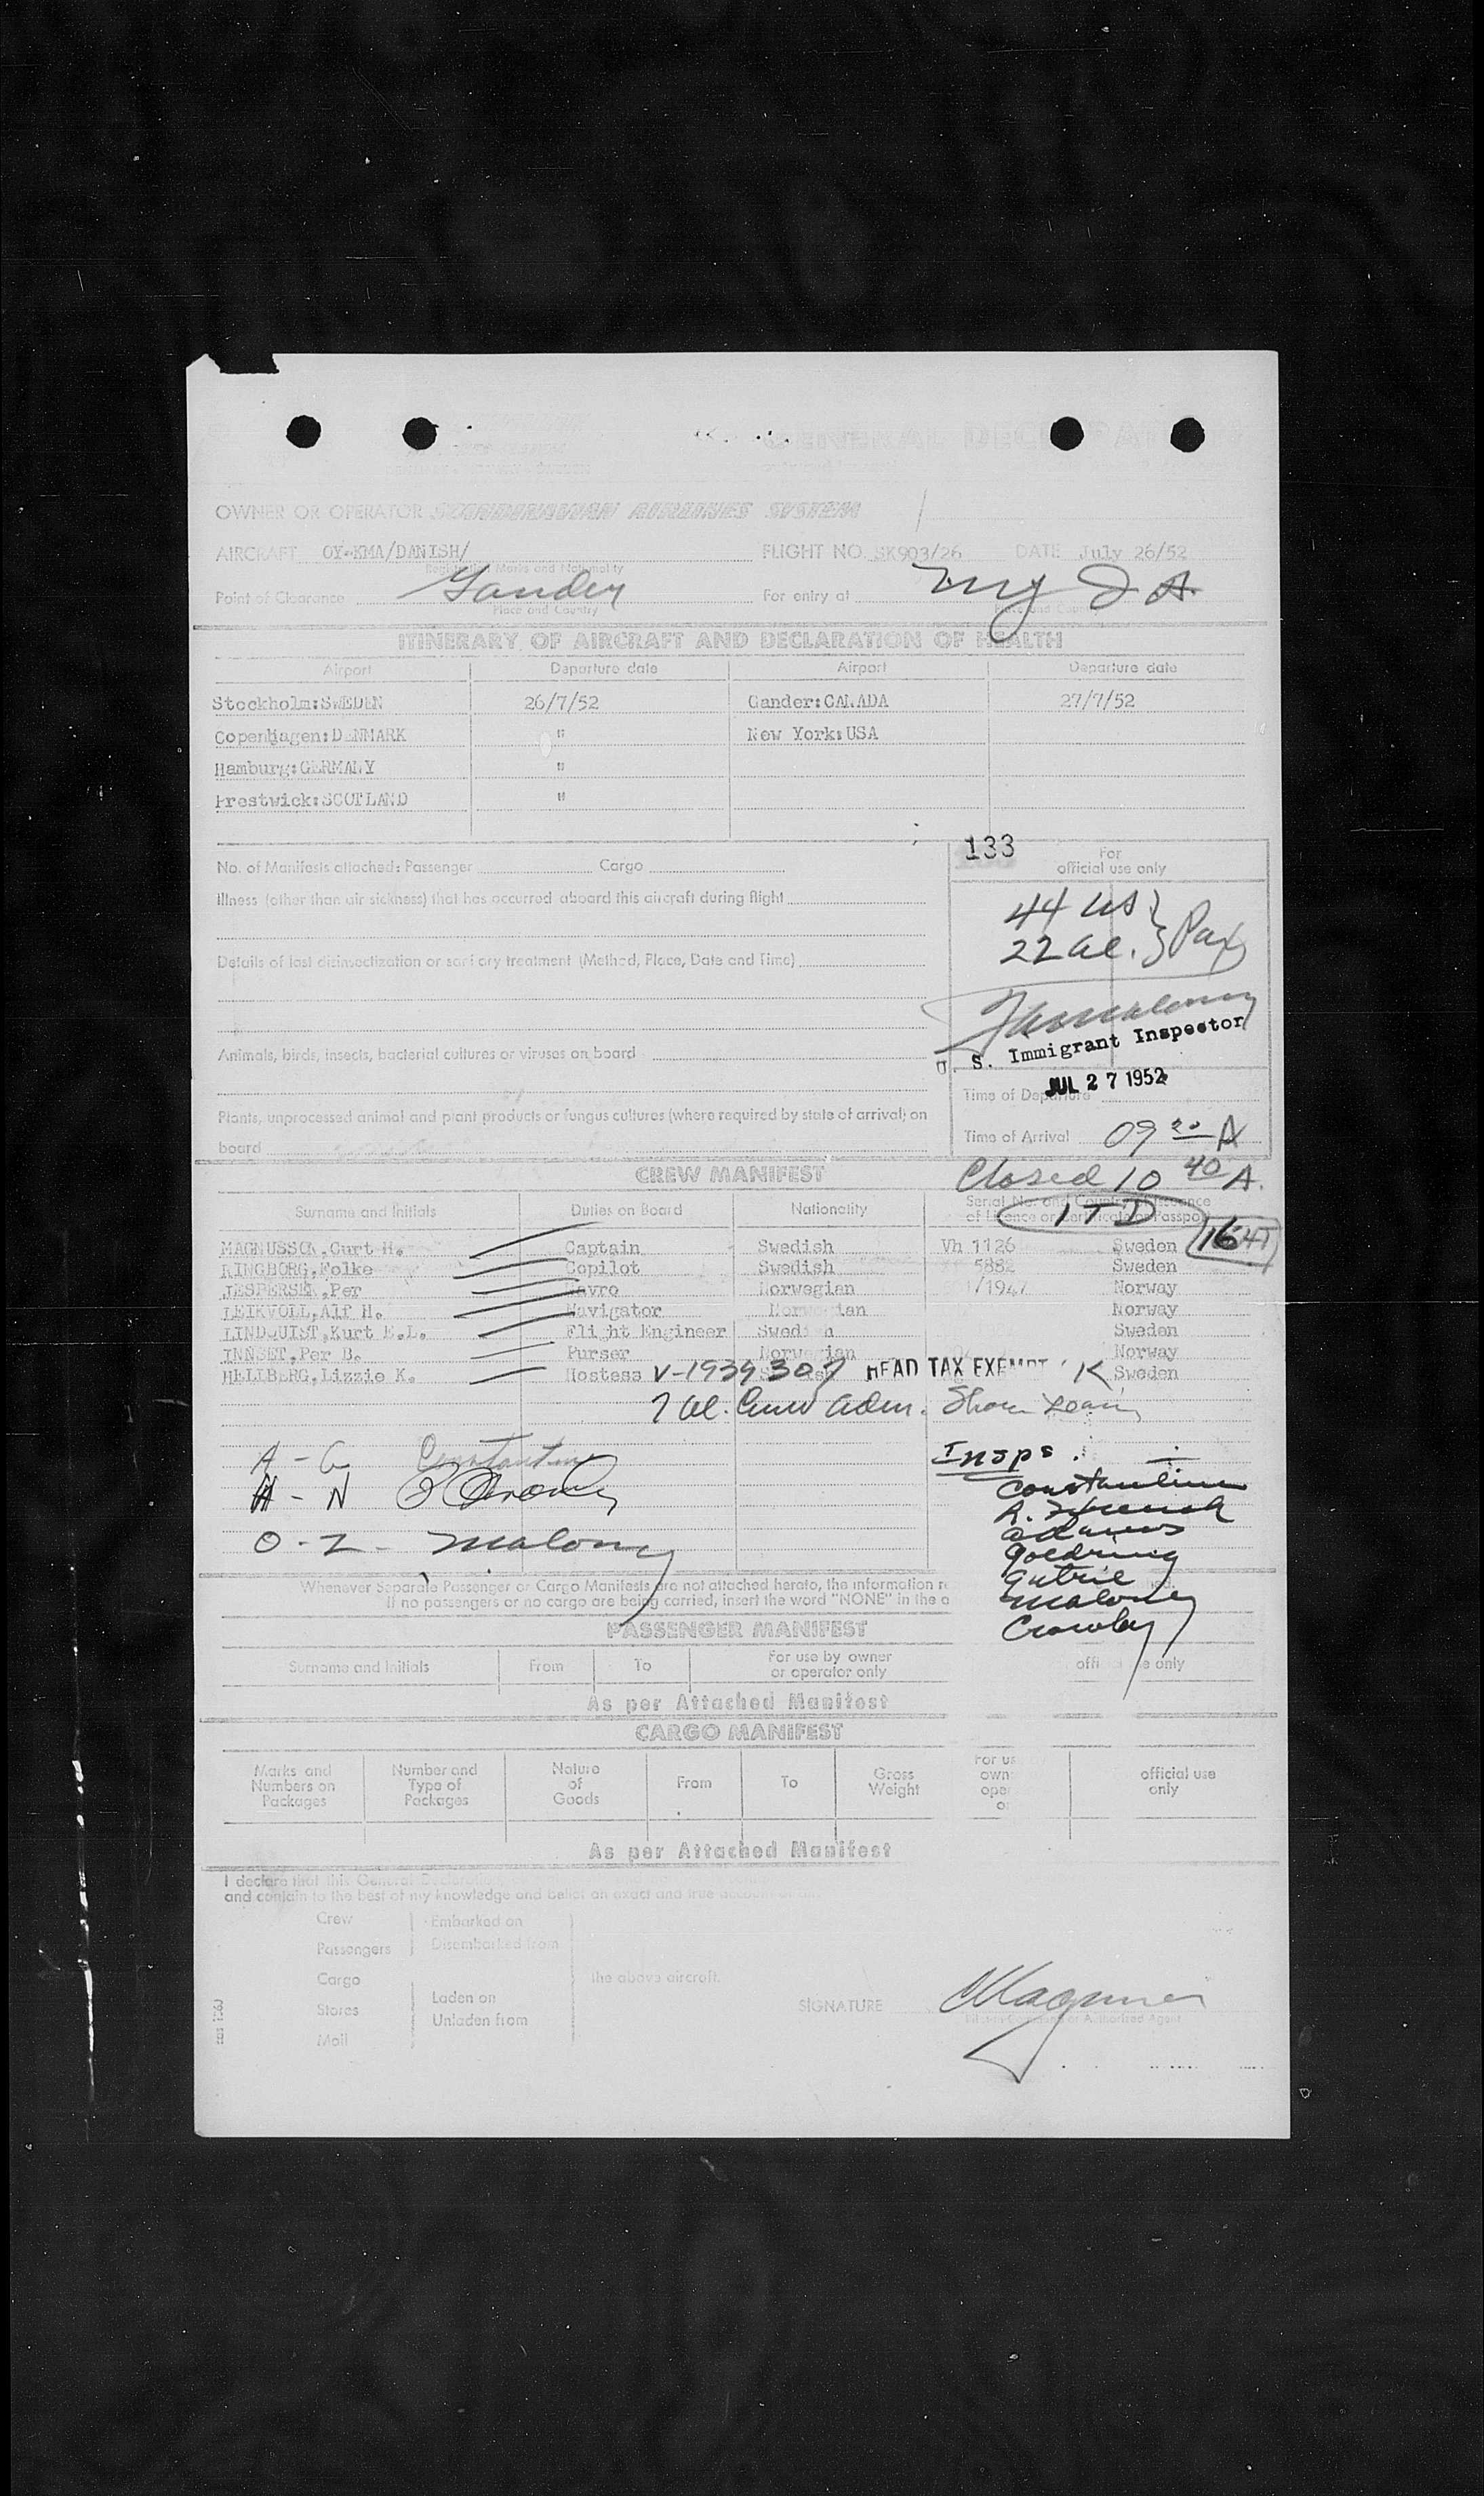 GENERAL DECLARATION
OWNER OR OPERATOR SCANDINAVIAN AIRLINES SYSTEM
AIRCRAFT OY-KMA/DANISH/ FLIGHT NO. SK903/26 DATE July 26/52
Registration Marks and Nationality
Point of Clearance Gander For entry at
Place and Country Place and Country
ITINERARY OF AIRCRAFT AND DECLARATION OF HEALTH
Airport Departure date Airport Departure date
Stockholm:SWEDEN 26/7/52 Gander:CANADA 27/7/52
Copenhagen:DENMARK " New York:USA
Hamburg:GERMANY "
Prestwick:SCOTLAND "
133 For
official use only
No. of Manifests attached: Passenger Cargo
44 US } Pax
22 al.
Illness (other than air sickness) that has occurred aboard this aircraft during flight
Details of last disinsectization or sanitary treatment (Method, Place, Date and Time)
U. S. Immigrant Inspector
Animals, birds, insects, bacterial cultures or viruses on board
JUL 27 1952
Time of Departure
Plants, unprocessed animal and plant products or fungus cultures (where required by state of arrival) on
board
Time of Arrival 09 20 A
CREW MANIFEST
Closed 10 40 A.
Surname and Initials Duties on Board Nationality Serial No. and Country of Issuance
of Licence or Certificate or Passport
1 TD
16
MAGNUSSON,Curt H. Captain Swedish Vh 1126 Sweden
RINGBORG,Folke Copilot Swedish 5882 Sweden
JESPERSEN,Per Navro Norwegian 1/1947 Norway
LEIKVOLL,Alf H. Navigator Norwegian Norway
LINDQUIST,Kurt E.L. Flight Engineer Swedish Sweden
INNSET,Per B. Purser Norwegian Norway
HELLBERG,Lizzie K. Hostess V-1939307 HEAD TAX EXEMPT K Sweden
7 al. Crew adm. Shore Leave
A - G Constantine
H - N
O - Z - Malony
Insps.
Constantine
Adams
Goldring
Gutrie
Maloney
Crowley
Whenever Separate Passenger or Cargo Manifests are not attached hereto, the information
If no passengers or no cargo are being carried, insert the word "NONE" in the
PASSENGER MANIFEST
Surname and Initials From To For use by owner
or operator only official use only
As per Attached Manifest
CARGO MANIFEST
Marks and
Numbers on
Packages
Number and
Type of
Packages
Nature
of
Goods
From To Gross
Weight
official use
only
As per Attached Manifest
I declare that this General Declaration
and contain to the best of my knowledge and belief an exact and true account of
Crew Embarked on
Passengers Disembarked from
Cargo the above aircraft.
Stores Laden on
Unladen from
Mail
SIGNATURE Magnusson
Pilot-in-Command or Authorized Agent